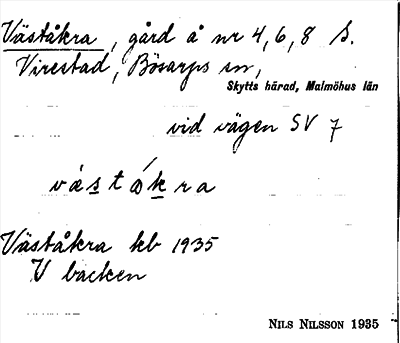 Väståkra, gård å nr 4, 6, 8 S.
Virestad, Bösarps sn,
Skytts härad, Malmöhus län
vid vägen SV 7
Väståkra kb 1935
V backen
NILS NILSSON 1935